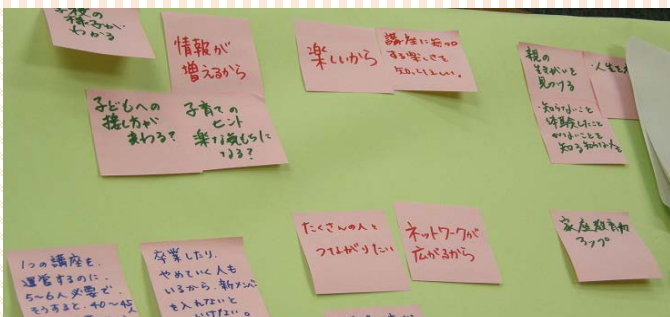 様子が
わかる
情報が
増えるから
楽しいから
講座に参加
する楽しさを
知ってほしい。
親の
生きがいを
見つける
・知らないこと
体験したこと
がないことを
・人生を
子どもへの
接し方が
変わる?
子育ての
ヒント
楽な気もちに
なる?
たくさんの人と
つながりたい
ネットワークが
広がるから
家庭教育力
アップ
1つの講座を、
運営するのに、
5〜6人必要で、
そうすると、40〜45人
卒業したり、
やめていく人も
いるから、新メンバー
を入れないと
いけない。